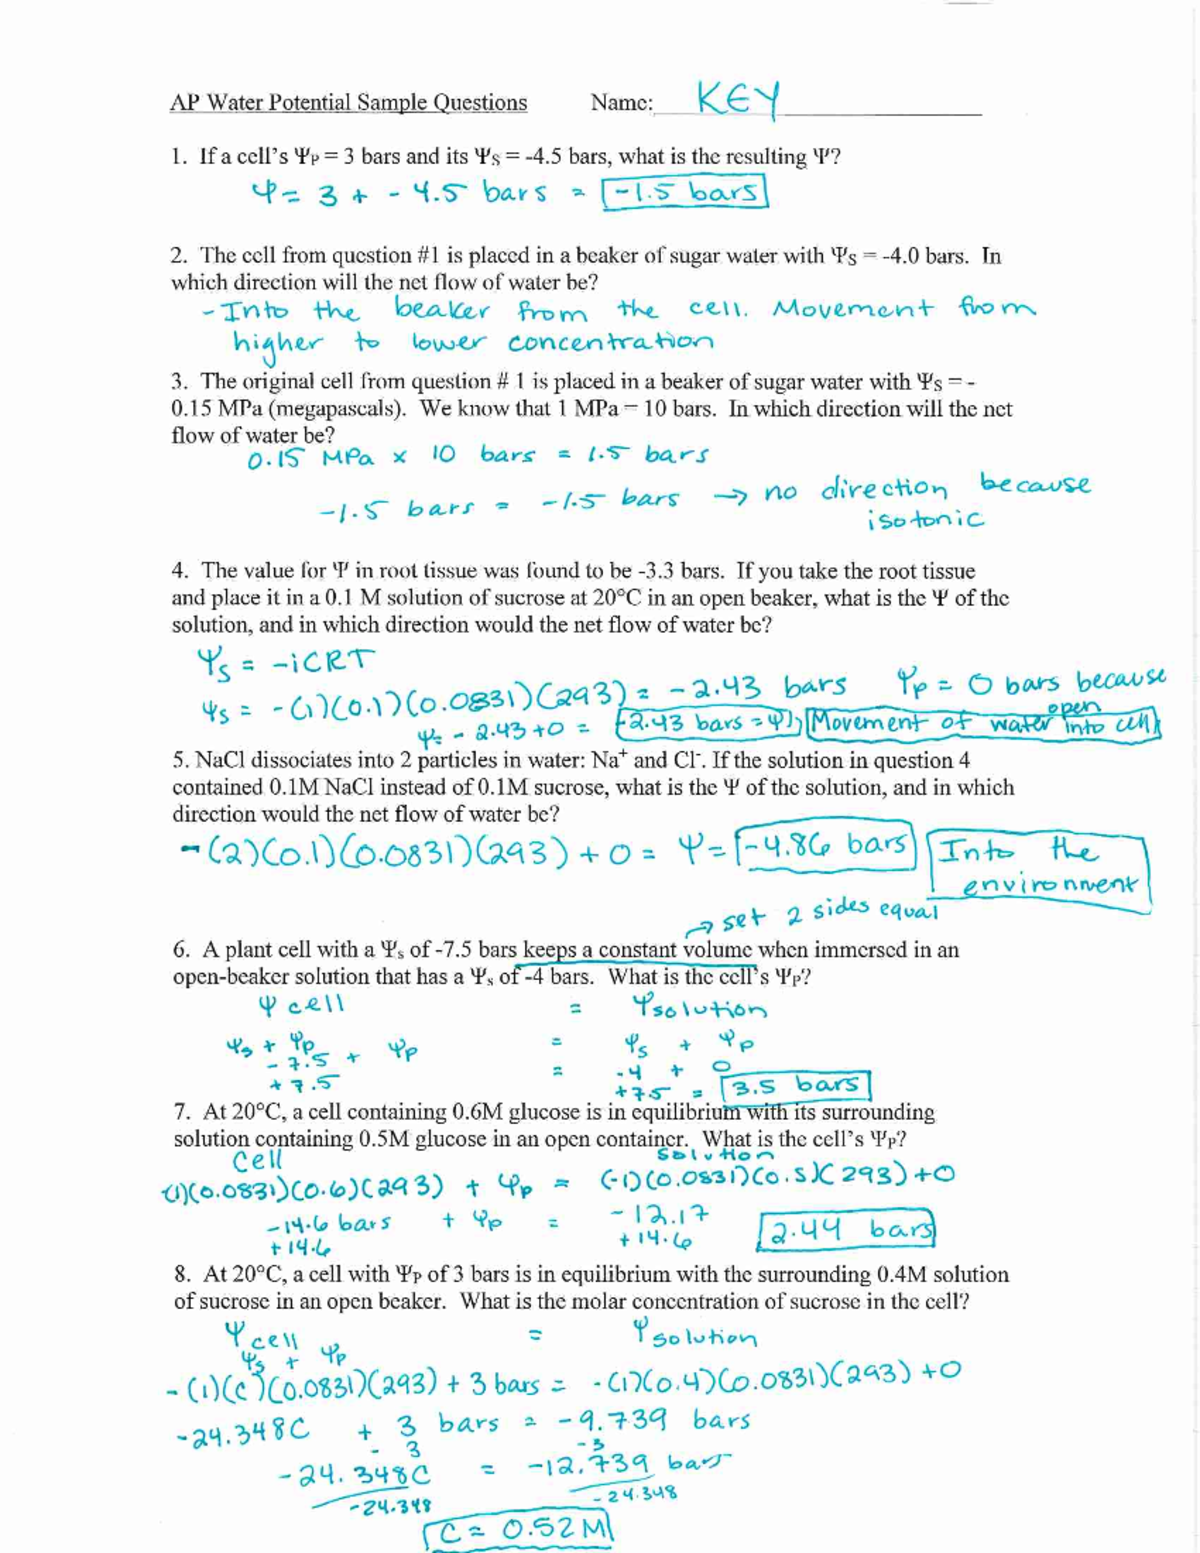 AP Water Potential Sample Questions Name: KEY
1. If a cell's ΨP = 3 bars and its ΨS = -4.5 bars, what is the resulting Ψ?
Ψ = 3 + - 4.5 bars = -1.5 bars
2. The cell from question #1 is placed in a beaker of sugar water with ΨS = -4.0 bars. In
which direction will the net flow of water be?
- Into the beaker from the cell. Movement from
higher to lower concentration
3. The original cell from question # 1 is placed in a beaker of sugar water with ΨS = -
0.15 MPa (megapascals). We know that 1 MPa = 10 bars. In which direction will the net
flow of water be?
0.15 MPa x 10 bars = 1.5 bars
-1.5 bars = -1.5 bars → no direction because
isotonic
4. The value for Ψ in root tissue was found to be -3.3 bars. If you take the root tissue
and place it in a 0.1 M solution of sucrose at 20°C in an open beaker, what is the Ψ of the
solution, and in which direction would the net flow of water be?
Ψs = -iCRT
Ψs = -(1)(0.1)(0.0831)(293) = -2.43 bars Ψp = 0 bars because
open
Ψ = -2.43+0 = -2.43 bars = Ψ Movement of water into cell
5. NaCl dissociates into 2 particles in water: Na+ and Cl-. If the solution in question 4
contained 0.1M NaCl instead of 0.1M sucrose, what is the Ψ of the solution, and in which
direction would the net flow of water be?
-(2)(0.1)(0.0831)(293) + 0 = Ψ = -4.86 bars Into the
environment
→ set 2 sides equal
6. A plant cell with a Ψs of -7.5 bars keeps a constant volume when immersed in an
open-beaker solution that has a Ψs of -4 bars. What is the cell's ΨP?
Ψ cell = Ψ solution
Ψs + Ψp = Ψs + Ψp
-7.5 + Ψp = -4 + 0
+7.5 +7.5 = 3.5 bars
7. At 20°C, a cell containing 0.6M glucose is in equilibrium with its surrounding
solution containing 0.5M glucose in an open container. What is the cell's ΨP?
Cell Solution
-(1)(0.0831)(0.6)(293) + Ψp = (-1)(0.0831)(0.5)(293)+0
-14.6 bars + Ψp = -12.17
+14.6 +14.6 2.44 bars
8. At 20°C, a cell with ΨP of 3 bars is in equilibrium with the surrounding 0.4M solution
of sucrose in an open beaker. What is the molar concentration of sucrose in the cell?
Ψ cell = Ψ solution
Ψs + Ψp
-(1)(C)(0.0831)(293) + 3 bars = -(1)(0.4)(0.0831)(293) +0
-24.348C + 3 bars = -9.739 bars
- 3 -3
-24.348C = -12.739 bars
-24.348 -24.348
C = 0.52 M